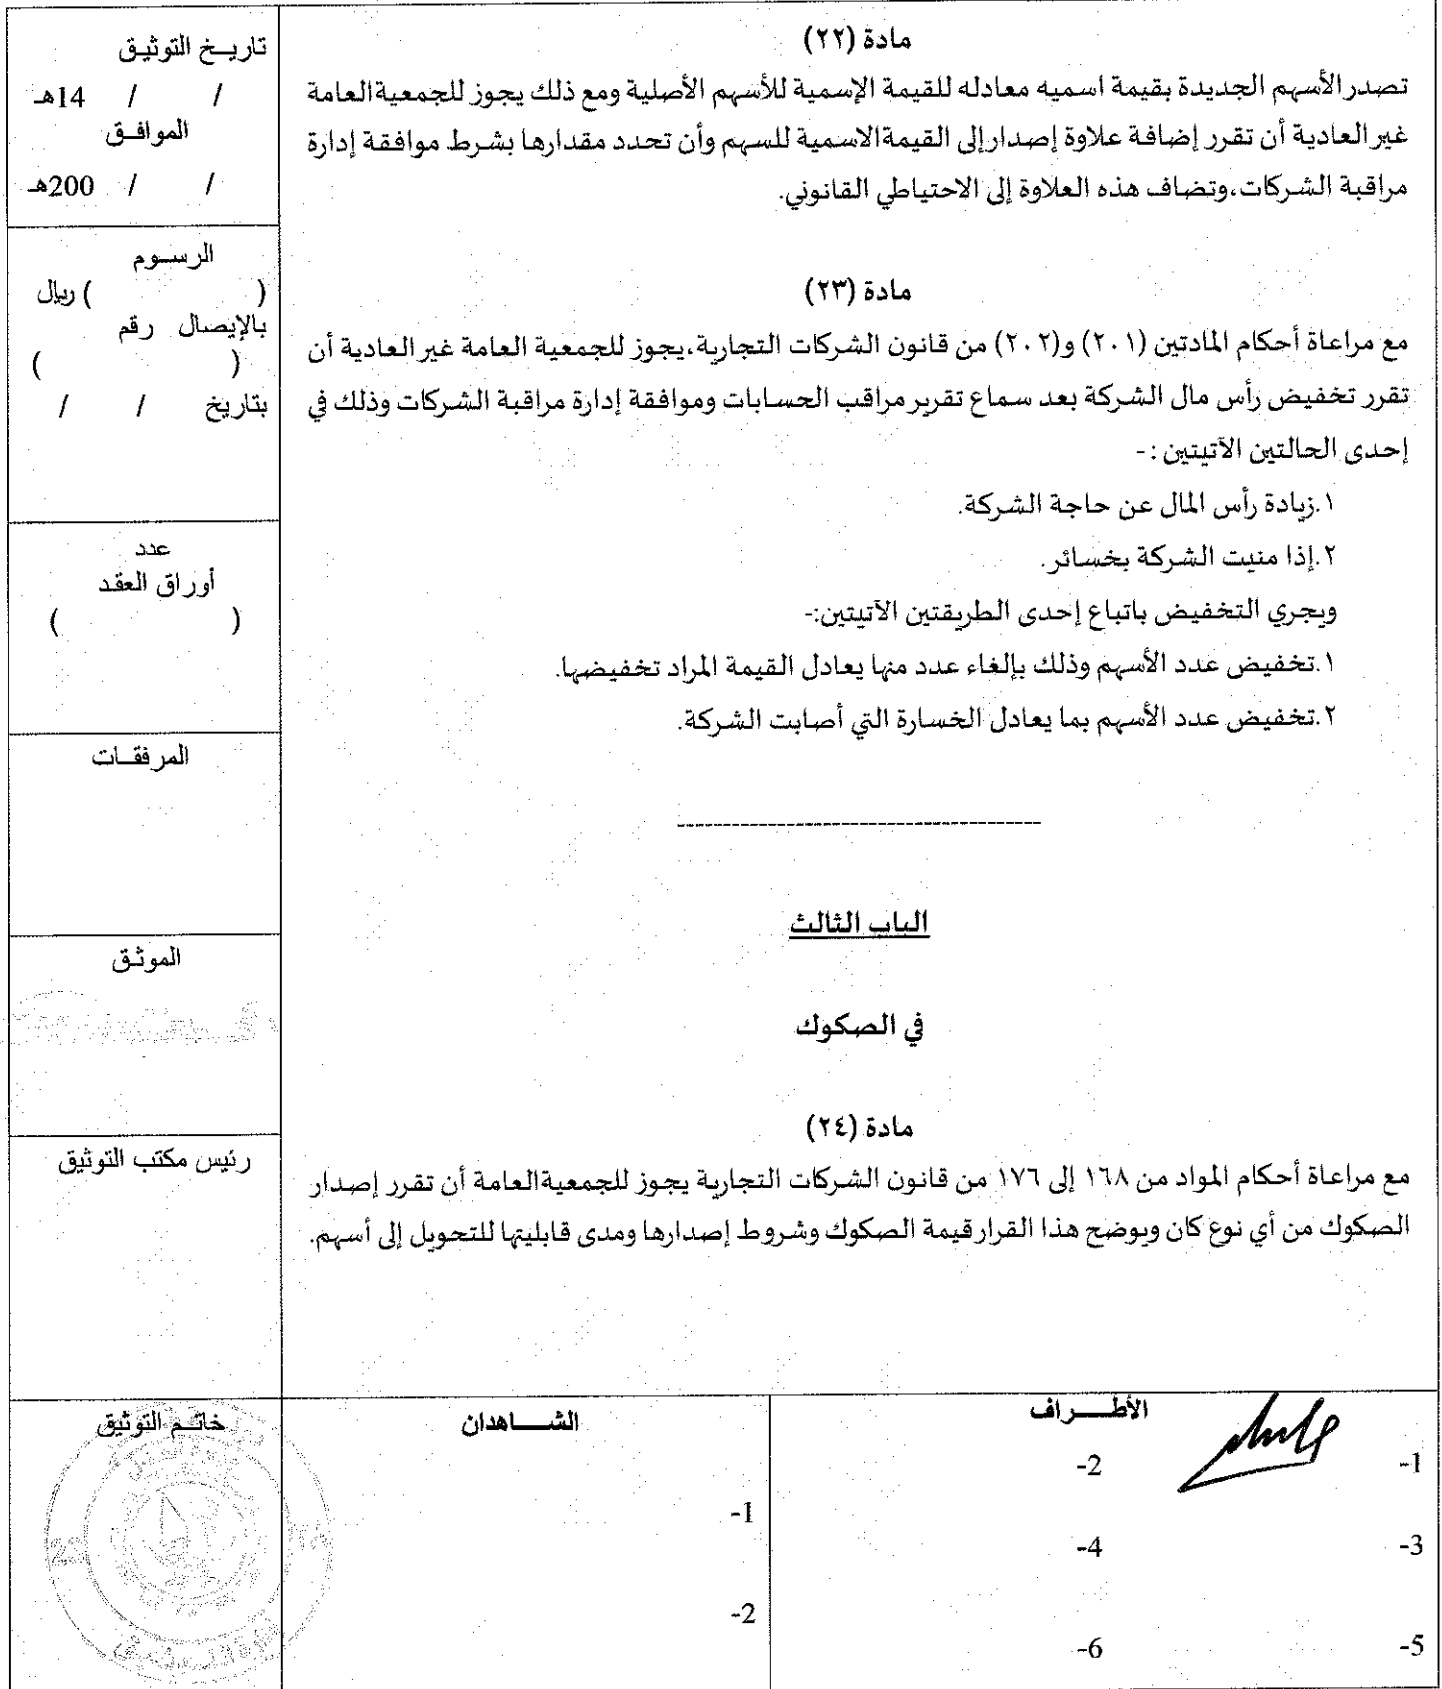 مادة (٢٢)
تصدر الأسهم الجديدة بقيمة اسميه معادله للقيمة الإسمية للأسهم الأصلية ومع ذلك يجوز للجمعية العامة
غير العادية أن تقرر إضافة علاوة إصدار إلى القيمة الاسمية للسهم وأن تحدد مقدارها بشرط موافقة إدارة
مراقبة الشركات، وتضاف هذه العلاوة إلى الاحتياطي القانوني.
مادة (٢٣)
مع مراعاة أحكام المادتين (٢٠١) و(٢٠٢) من قانون الشركات التجارية، يجوز للجمعية العامة غير العادية أن
تقرر تخفيض رأس مال الشركة بعد سماع تقرير مراقب الحسابات وموافقة إدارة مراقبة الشركات وذلك في
إحدى الحالتين الآتيتين :-
١.زيادة رأس المال عن حاجة الشركة.
٢.إذا منيت الشركة بخسائر.
ويجري التخفيض باتباع إحدى الطريقتين الآتيتين:-
١.تخفيض عدد الأسهم وذلك بإلغاء عدد منها يعادل القيمة المراد تخفيضها.
٢.تخفيض عدد الأسهم بما يعادل الخسارة التي أصابت الشركة.
الباب الثالث
في الصكوك
مادة (٢٤)
مع مراعاة أحكام المواد من ١٦٨ إلى ١٧٦ من قانون الشركات التجارية يجوز للجمعية العامة أن تقرر إصدار
الصكوك من أي نوع كان ويوضح هذا القرار قيمة الصكوك وشروط إصدارها ومدى قابليتها للتحويل إلى أسهم.
تاريـخ التوثيـق
/ / 14هـ
الموافـق
/ / 200هـ
الرسـوم
( ) ريال
بالإيصال رقم
( )
بتاريخ / /
عدد
أوراق العقد
( )
المرفقـات
الموثـق
رئيس مكتب التوثيق
الأطـــراف
1-
2-
3-
4-
5-
6-
الشـــاهدان
1-
2-
خاتـم التوثيق